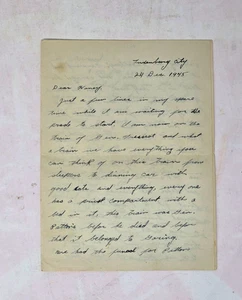 Luxembourg City
24 Dec 1945
Dear
Just a few lines in my spare
time while I am waiting for the
to start. I am now on the
train of Gen. and what
a train we have everything you
can think of on this train from
sleepers to dinning car with
good and everything every one
has a compartment with a
bed in it, this train was Gen.
Pattons before he died and before
that it belonged to Goering.
we had the funeral for Patton